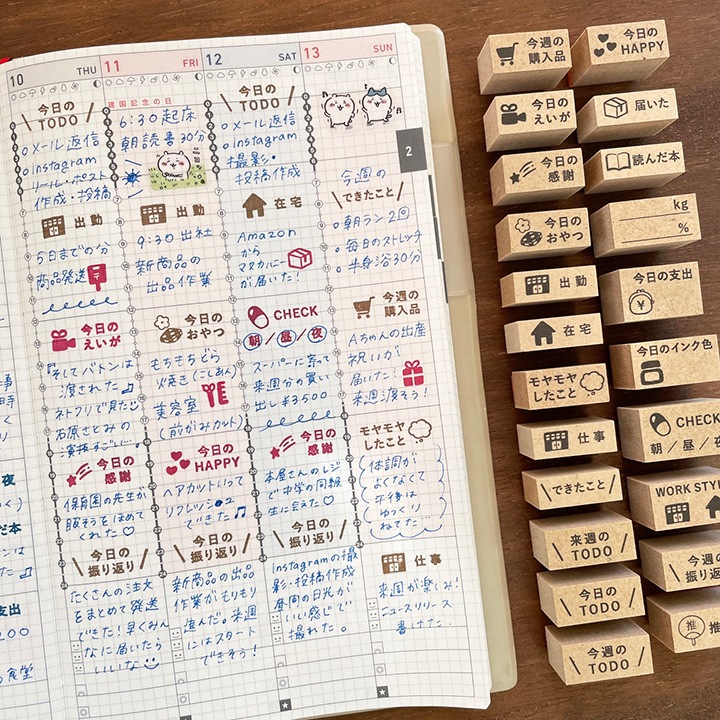 10 THU
今日の
TODO
○メール返信
○Instagram
リール・ポスト
作成・投稿
出勤
5日までの分
商品発送
今日の
えいが
『そしてバトンは
渡された』
ネトフリで見た
石原さとみの
演技すごい。
今日の
感謝
保育園の先生が
服そうをほめて
くれた♡
今日の
振り返り
たくさんの注文
をまとめて発送
できた!早くみん
なに届いたら
いいな
11 FRI
建国記念の日
6:30起床
朝読書30分
出勤
9:30出社
新商品の
出品作業
今日の
おやつ
もちもちどら
焼き(こしあん)
美容室
(前がみカット)
今日の
HAPPY
ヘアカットいって
リフレッシュ
できた♫
今日の
振り返り
新商品の出品
作業がもりもり
進んだ。来週
にはスタート
できそう!
12 SAT
今日の
TODO
○メール返信
○Instagram
撮影・
投稿作成
在宅
Amazon
から
マヌカハニー
が届いた!
CHECK
朝/昼/夜
スーパーに寄って
来週分の買い
出し¥3500
今日の
感謝
本屋さんのレジ
で中学の同級
生に会えた♡
今日の
振り返り
Instagramの撮
影・投稿作成
昼間の日光が
いい感じで
撮れた。
13 SUN
2
今週の
できたこと
○朝ラン2回
○毎日のストレッチ
○半身浴30分
今週の
購入品
Aちゃんの出産
祝いが
届いた!
来週渡そう!
モヤモヤ
したこと
体調が
よくなくて
午後は
ゆっくり
ねてた
仕事
来週が楽しみ!
ニュースリリース
書けた.
今週の
購入品
今日の
HAPPY
今日の
えいが
届いた
今日の
感謝
読んだ本
今日の
おやつ
kg
%
出勤
今日の支出
在宅
今日のインク色
モヤモヤ
したこと
CHECK
朝/昼/夜
仕事
WORK STYLE
できたこと
今週の
振り返り
来週の
TODO
今日の
TODO
推
今週の
TODO